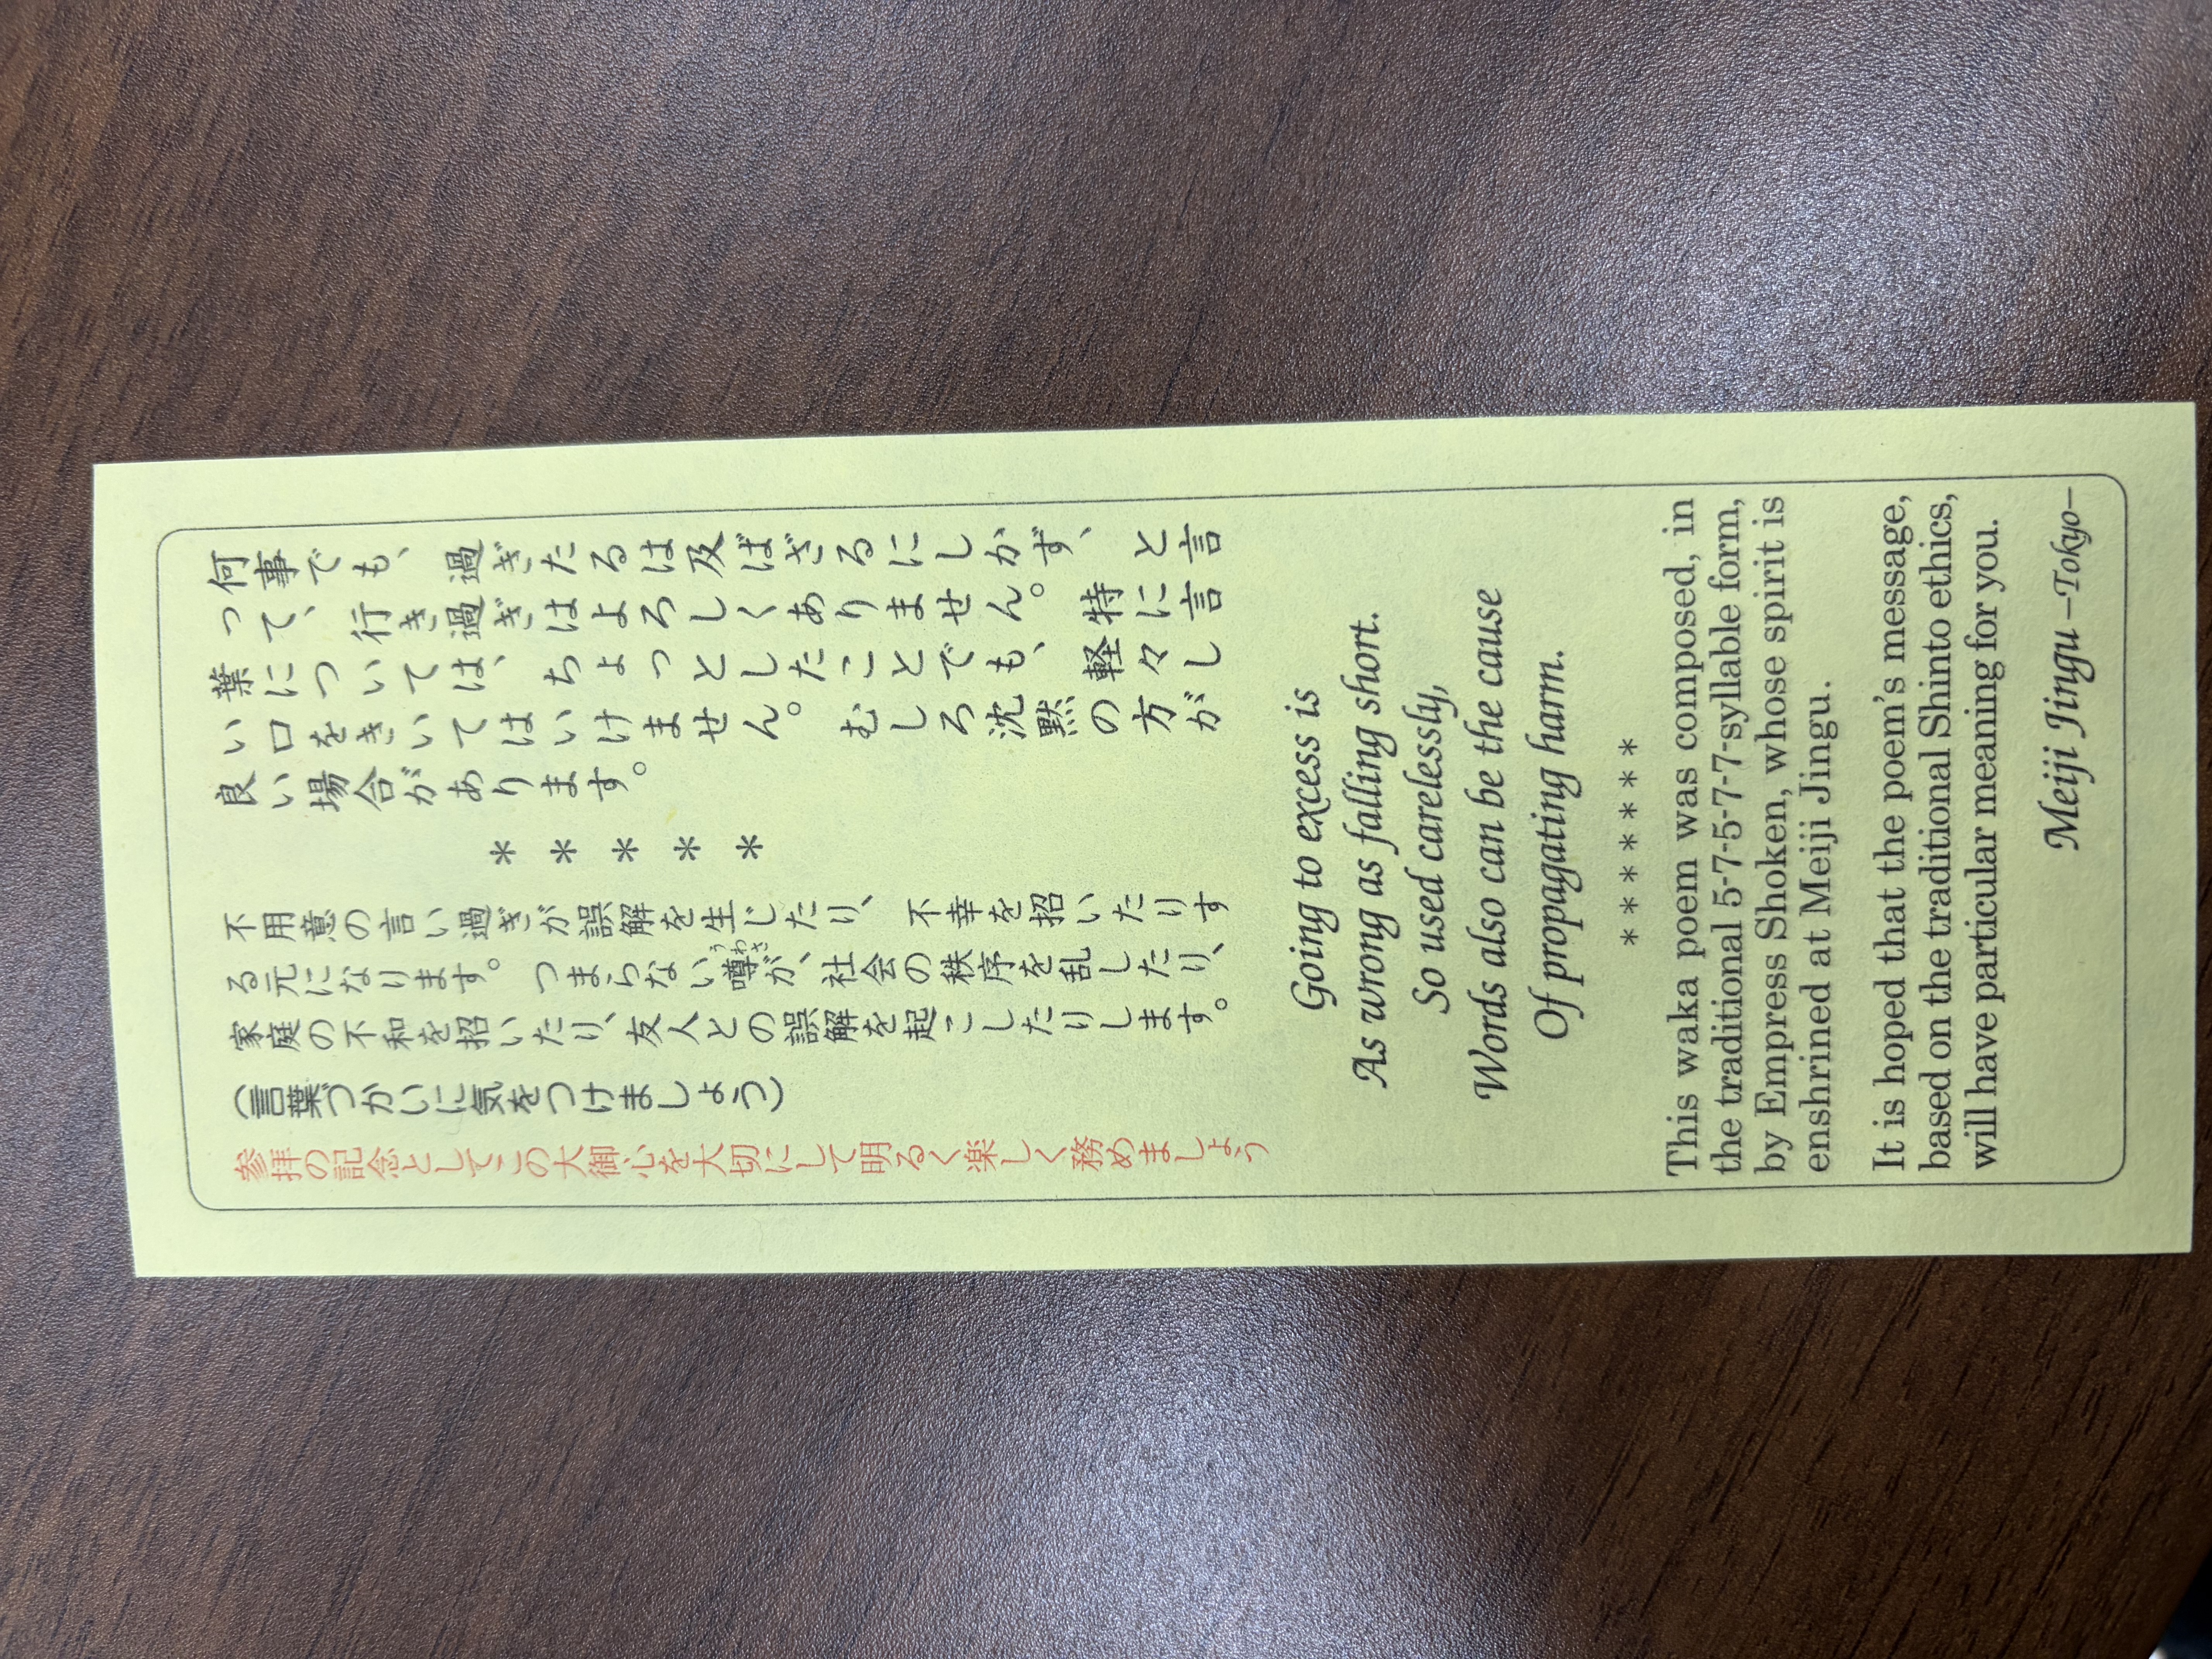 何事でも、過ぎたるは及ばざるにしかず、と言
って、行き過ぎはよろしくありません。特に言
葉については、ちょっとしたことでも、軽々し
い口をきいてはいけません。むしろ沈黙の方が
良い場合があります。
＊＊＊＊＊
不用意の言い過ぎが誤解を生じたり、不幸を招いたりす
る元になります。つまらない噂うわさが、社会の秩序を乱したり、
家庭の不和を招いたり、友人との誤解を起こしたりします。
（言葉づかいに気をつけましょう）
参拝の記念としてこの大御心を大切にして明るく楽しく務めましょう
Going to excess is
As wrong as falling short.
So used carelessly,
Words also can be the cause
Of propagating harm.
*******
This waka poem was composed, in
the traditional 5-7-5-7-7-syllable form,
by Empress Shoken, whose spirit is
enshrined at Meiji Jingu.
It is hoped that the poem's message,
based on the traditional Shinto ethics,
will have particular meaning for you.
Meiji Jingu –Tokyo–